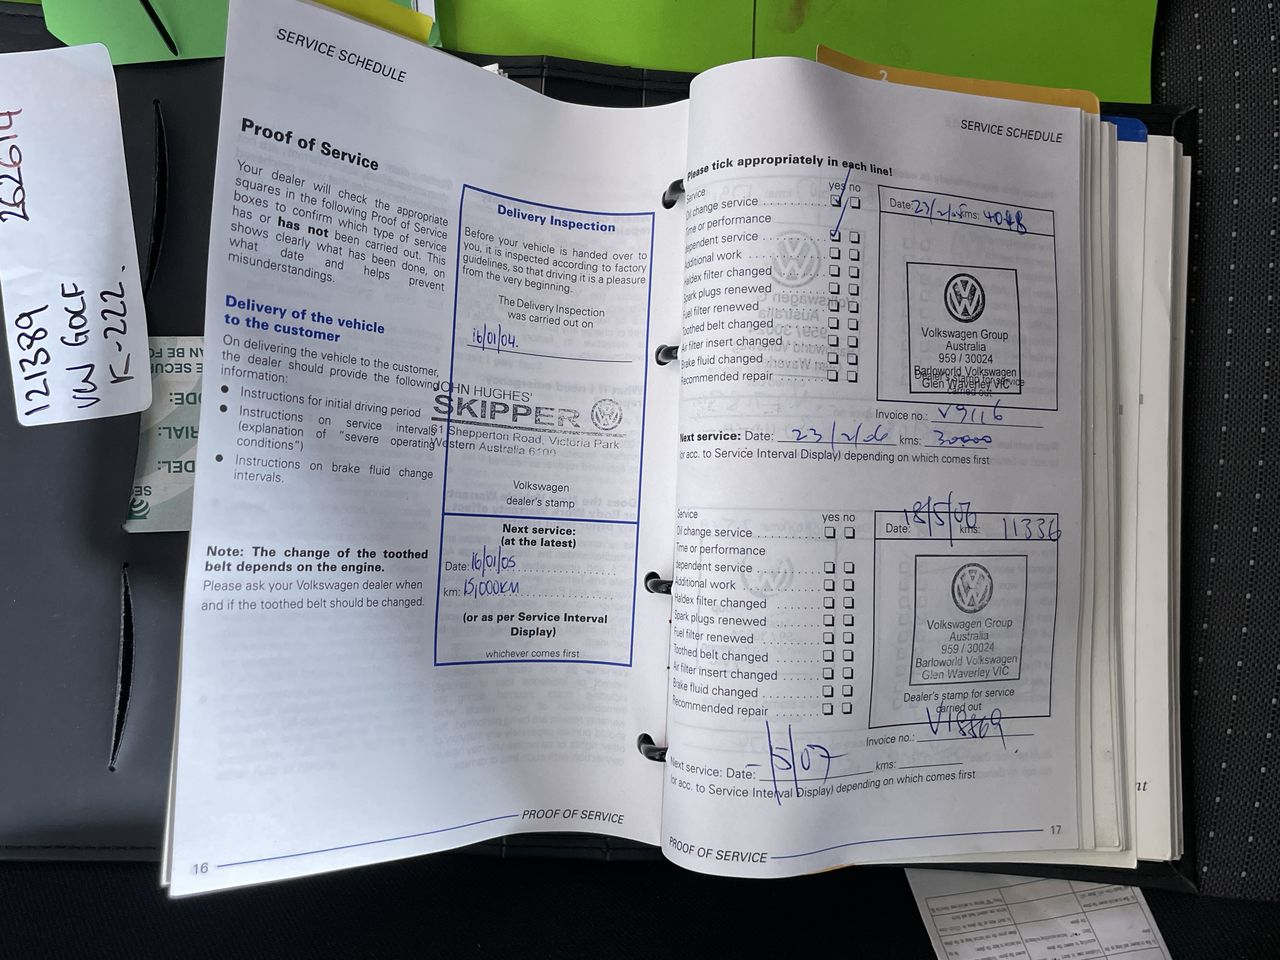 262614
121389
VW GOLF
K-222.
SERVICE SCHEDULE
Proof of Service
Your dealer will check the appropriate
squares in the following Proof of Service
boxes to confirm which type of service
has or has not been carried out. This
shows clearly what has been done, on
what date and helps prevent
misunderstandings.
Delivery of the vehicle
to the customer
On delivering the vehicle to the customer,
the dealer should provide the following
information:
Instructions for initial driving period
Instructions on service intervals
(explanation of "severe operating
conditions")
Instructions on brake fluid change
intervals.
Note: The change of the toothed
belt depends on the engine.
Please ask your Volkswagen dealer when
and if the toothed belt should be changed.
Delivery Inspection
Before your vehicle is handed over to
you, it is inspected according to factory
guidelines, so that driving it is a pleasure
from the very beginning.
The Delivery Inspection
was carried out on
16/01/04.
JOHN HUGHES'
SKIPPER
61 Shepperton Road, Victoria Park
Western Australia 6100
Volkswagen
dealer's stamp
Next service:
(at the latest)
Date: 16/01/05
km: 15,000KM
(or as per Service Interval
Display)
whichever comes first
16
PROOF OF SERVICE
2
SERVICE SCHEDULE
Please tick appropriately in each line!
Service yes no
Oil change service
Time or performance
dependent service
Additional work
Haldex filter changed
Spark plugs renewed
Fuel filter renewed
Toothed belt changed
Air filter insert changed
Brake fluid changed
Recommended repair
Date: 23/2/05 kms:
Volkswagen Group
Australia
959 / 30024
Barloworld Volkswagen
Glen Waverley VIC
Dealer's stamp for service
carried out
Invoice no.: V9116
Next service: Date: 23/2/06 kms: 30000
(or acc. to Service Interval Display) depending on which comes first
Service yes no
Oil change service
Time or performance
dependent service
Additional work
Haldex filter changed
Spark plugs renewed
Fuel filter renewed
Toothed belt changed
Air filter insert changed
Brake fluid changed
Recommended repair
Date: 18/5/06 kms: 11336
Volkswagen Group
Australia
959 / 30024
Barloworld Volkswagen
Glen Waverley VIC
Dealer's stamp for service
carried out
Invoice no.: V18869
Next service: Date: - /5/07 kms:
(or acc. to Service Interval Display) depending on which comes first
PROOF OF SERVICE
17